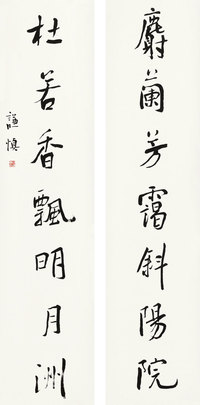 麝蘭芳靄斜陽院
杜若香飄明月洲
謙慎